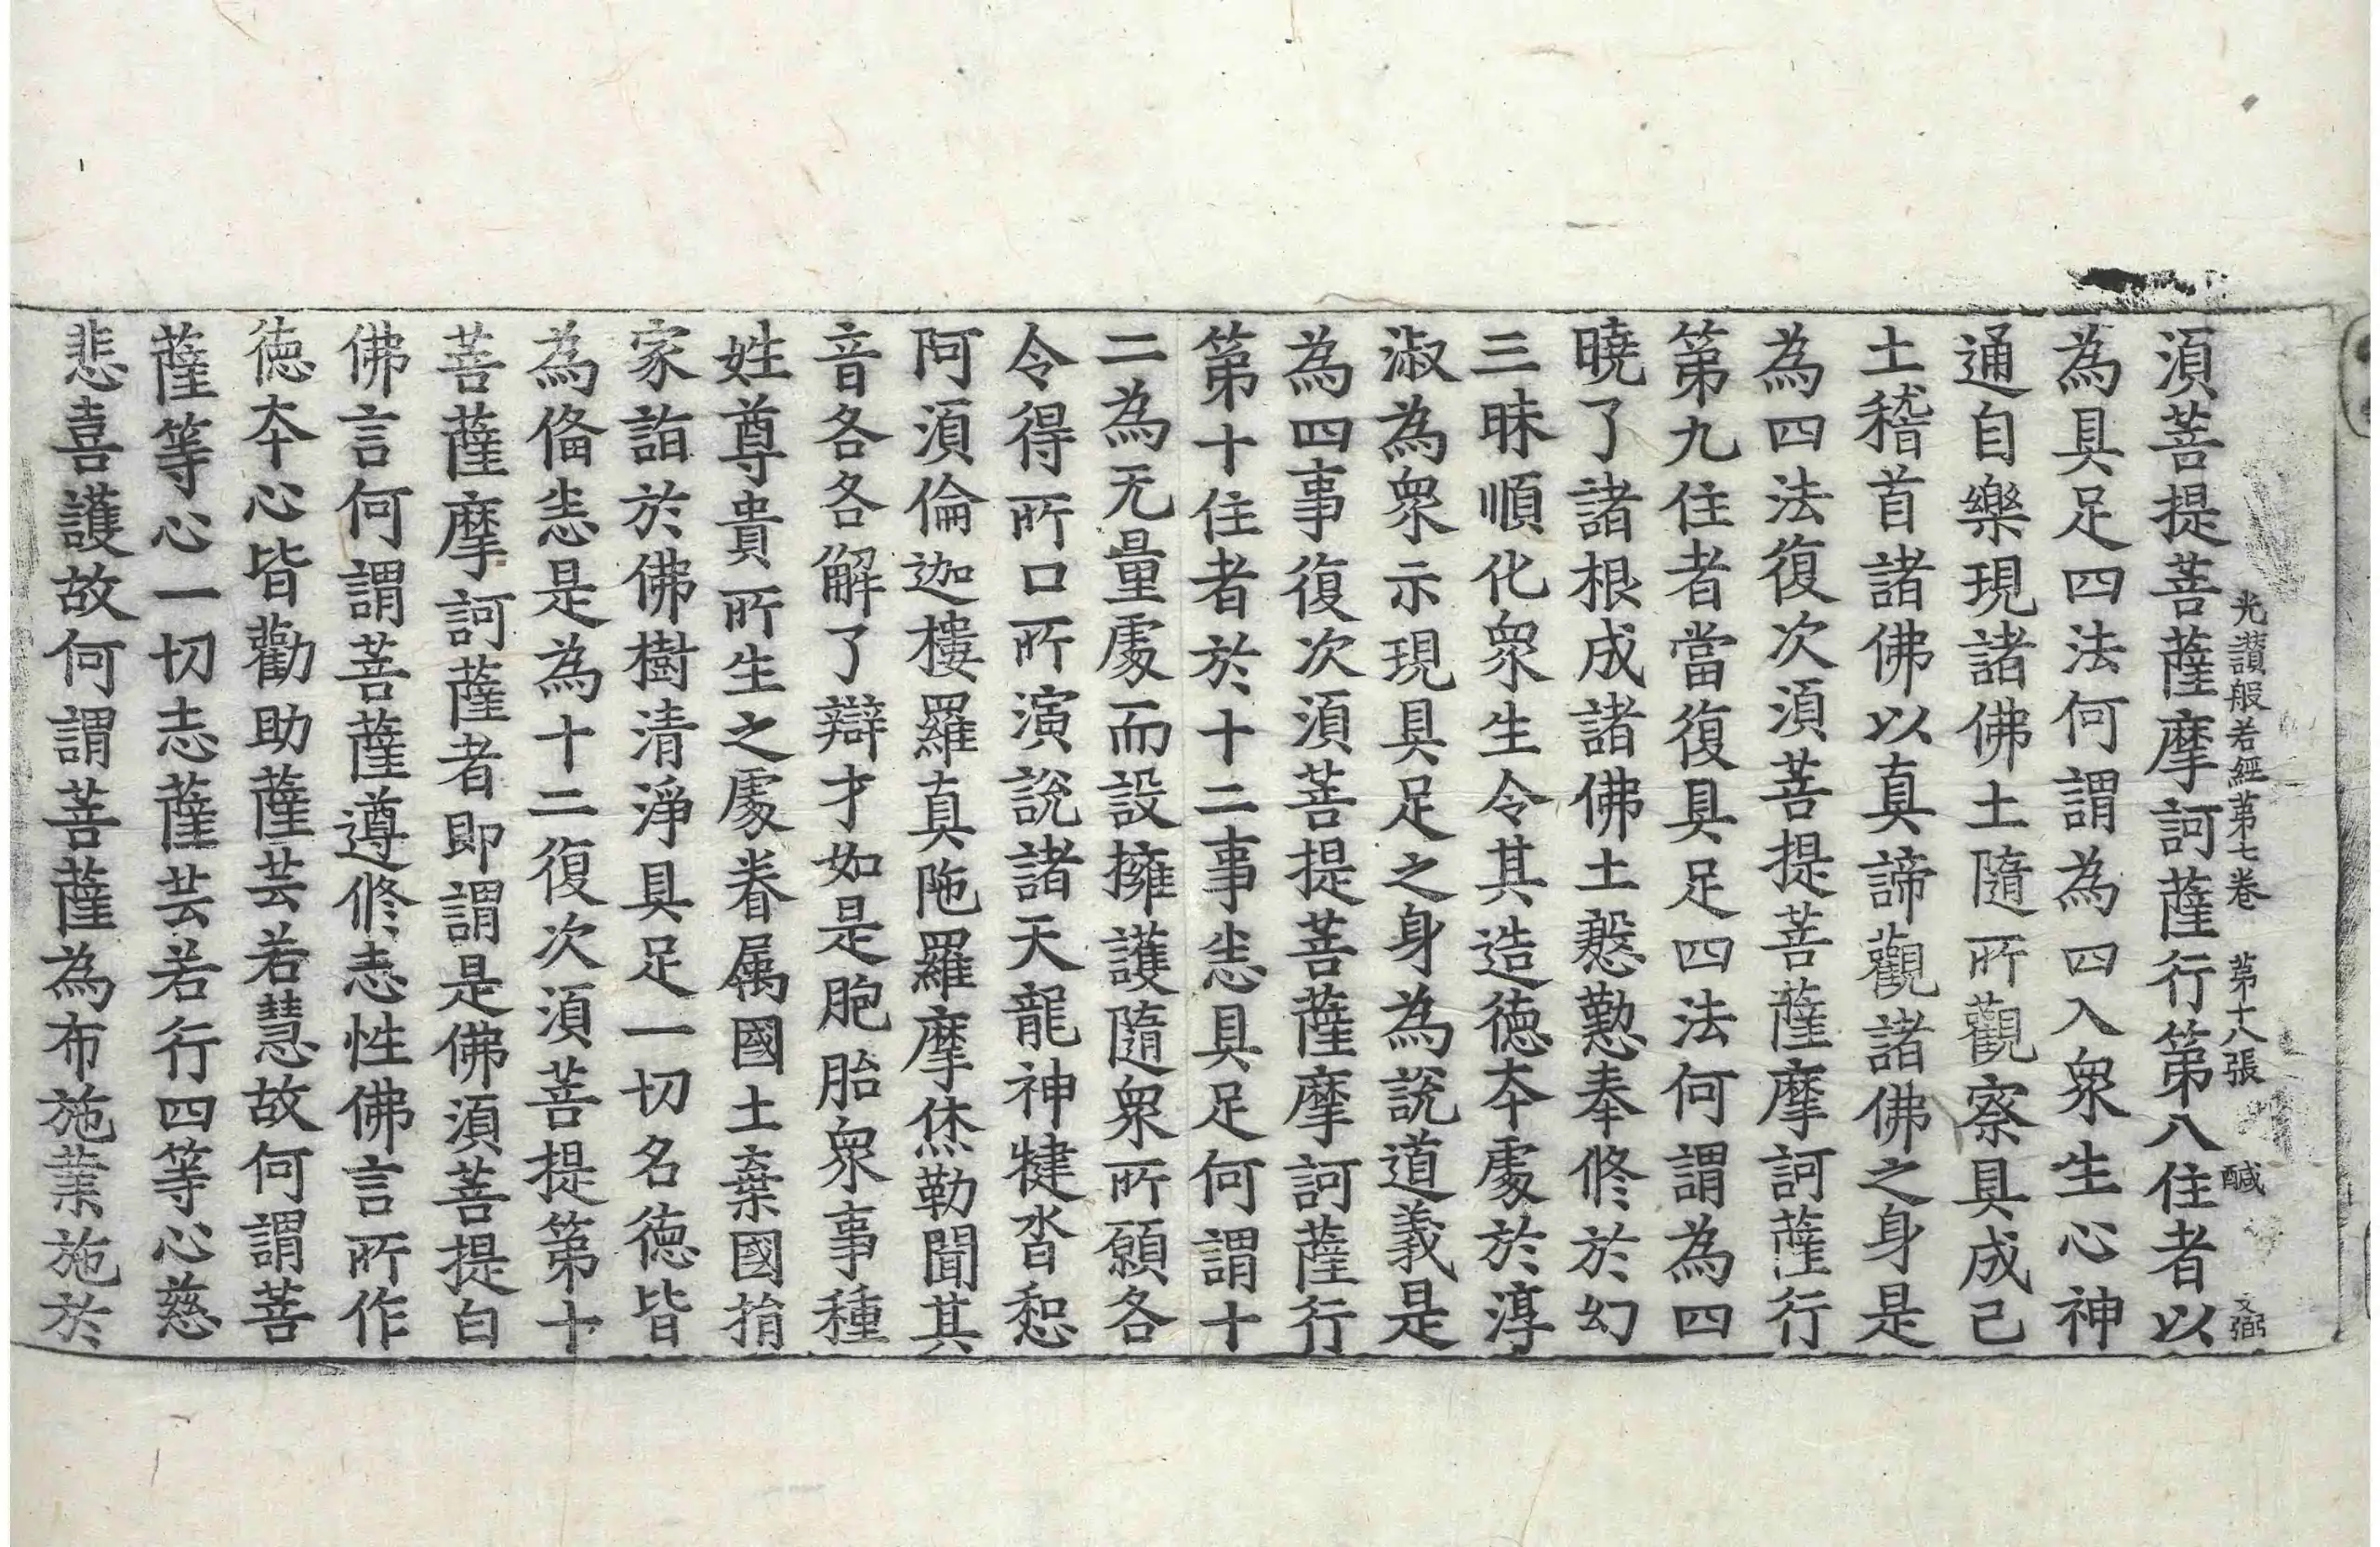 光讃般若經第七卷　第十八張　醎　文弼
湏菩提菩薩摩訶薩行第八住者以
為具足四法何謂為四入衆生心神
通自樂現諸佛土隨所觀察具成己
土稽首諸佛以真諦觀諸佛之身是
為四法復次湏菩提菩薩摩訶薩行
第九住者當復具足四法何謂為四
曉了諸根成諸佛土慇懃奉修於幻
三昧順化衆生令其造德夲處於淳
淑為衆示現具足之身為說道義是
為四事復次湏菩提菩薩摩訶薩行
第十住者於十二事悉具足何謂十
二為无量處而設擁護隨衆所願各
令得所口所演說諸天龍神揵沓惒
阿湏倫迦樓羅真陁羅摩烋勒聞其
音各各解了辯才如是胞胎衆事種
姓尊貴所生之處眷属國土棄國捐
家詣於佛樹清淨具足一切名德皆
為俻悉是為十二復次湏菩提第十
菩薩摩訶薩者即謂是佛湏菩提白
佛言何謂菩薩遵修志性佛言所作
德夲心皆勸助薩芸若慧故何謂菩
薩等心一切志薩芸若行四等心慈
悲喜護故何謂菩薩為布施業施於